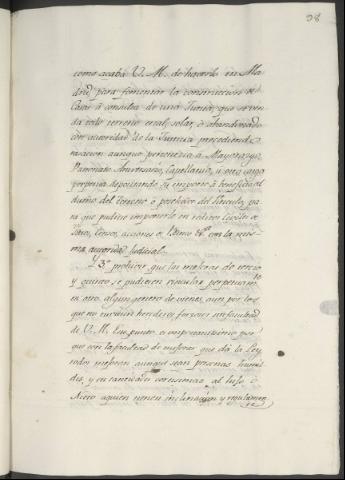 98
como acaba V. M. de hacerlo en Ma-
drid para fomentar la construccion de
Casas á consulta de una Junta, que se ven-
da todo terreno erial, solar, ó abandonado
con autoridad de la Justicia precediendo
tasacion aunque pertenezca a Mayorazgo,
Patronato Aniversario, Capellania, u otra carga
perpetua depositando su importe á beneficio del
dueño del terreno ó poseedor del Vinculo, pa-
ra que pudiese imponerlo en reditos
Censos, acciones de Banco con la mis-
ma autoridad Judicial.
Y 3º prohivir que las mejoras de tercio
y quinto se pudiesen vincular perpetuam.te
en otro algun genero de vienes, aun por los
que no tuviesen herederos forzosos sin facultad
de V. M. Ese punto es importantisimo por
que con la facultad de mejorar que dá la Ley
todos mejoran aunque sean personas humil-
des, y en cantidades cortisimas al hijo ó
Nieto a quien tienen inclinacion y regularmen